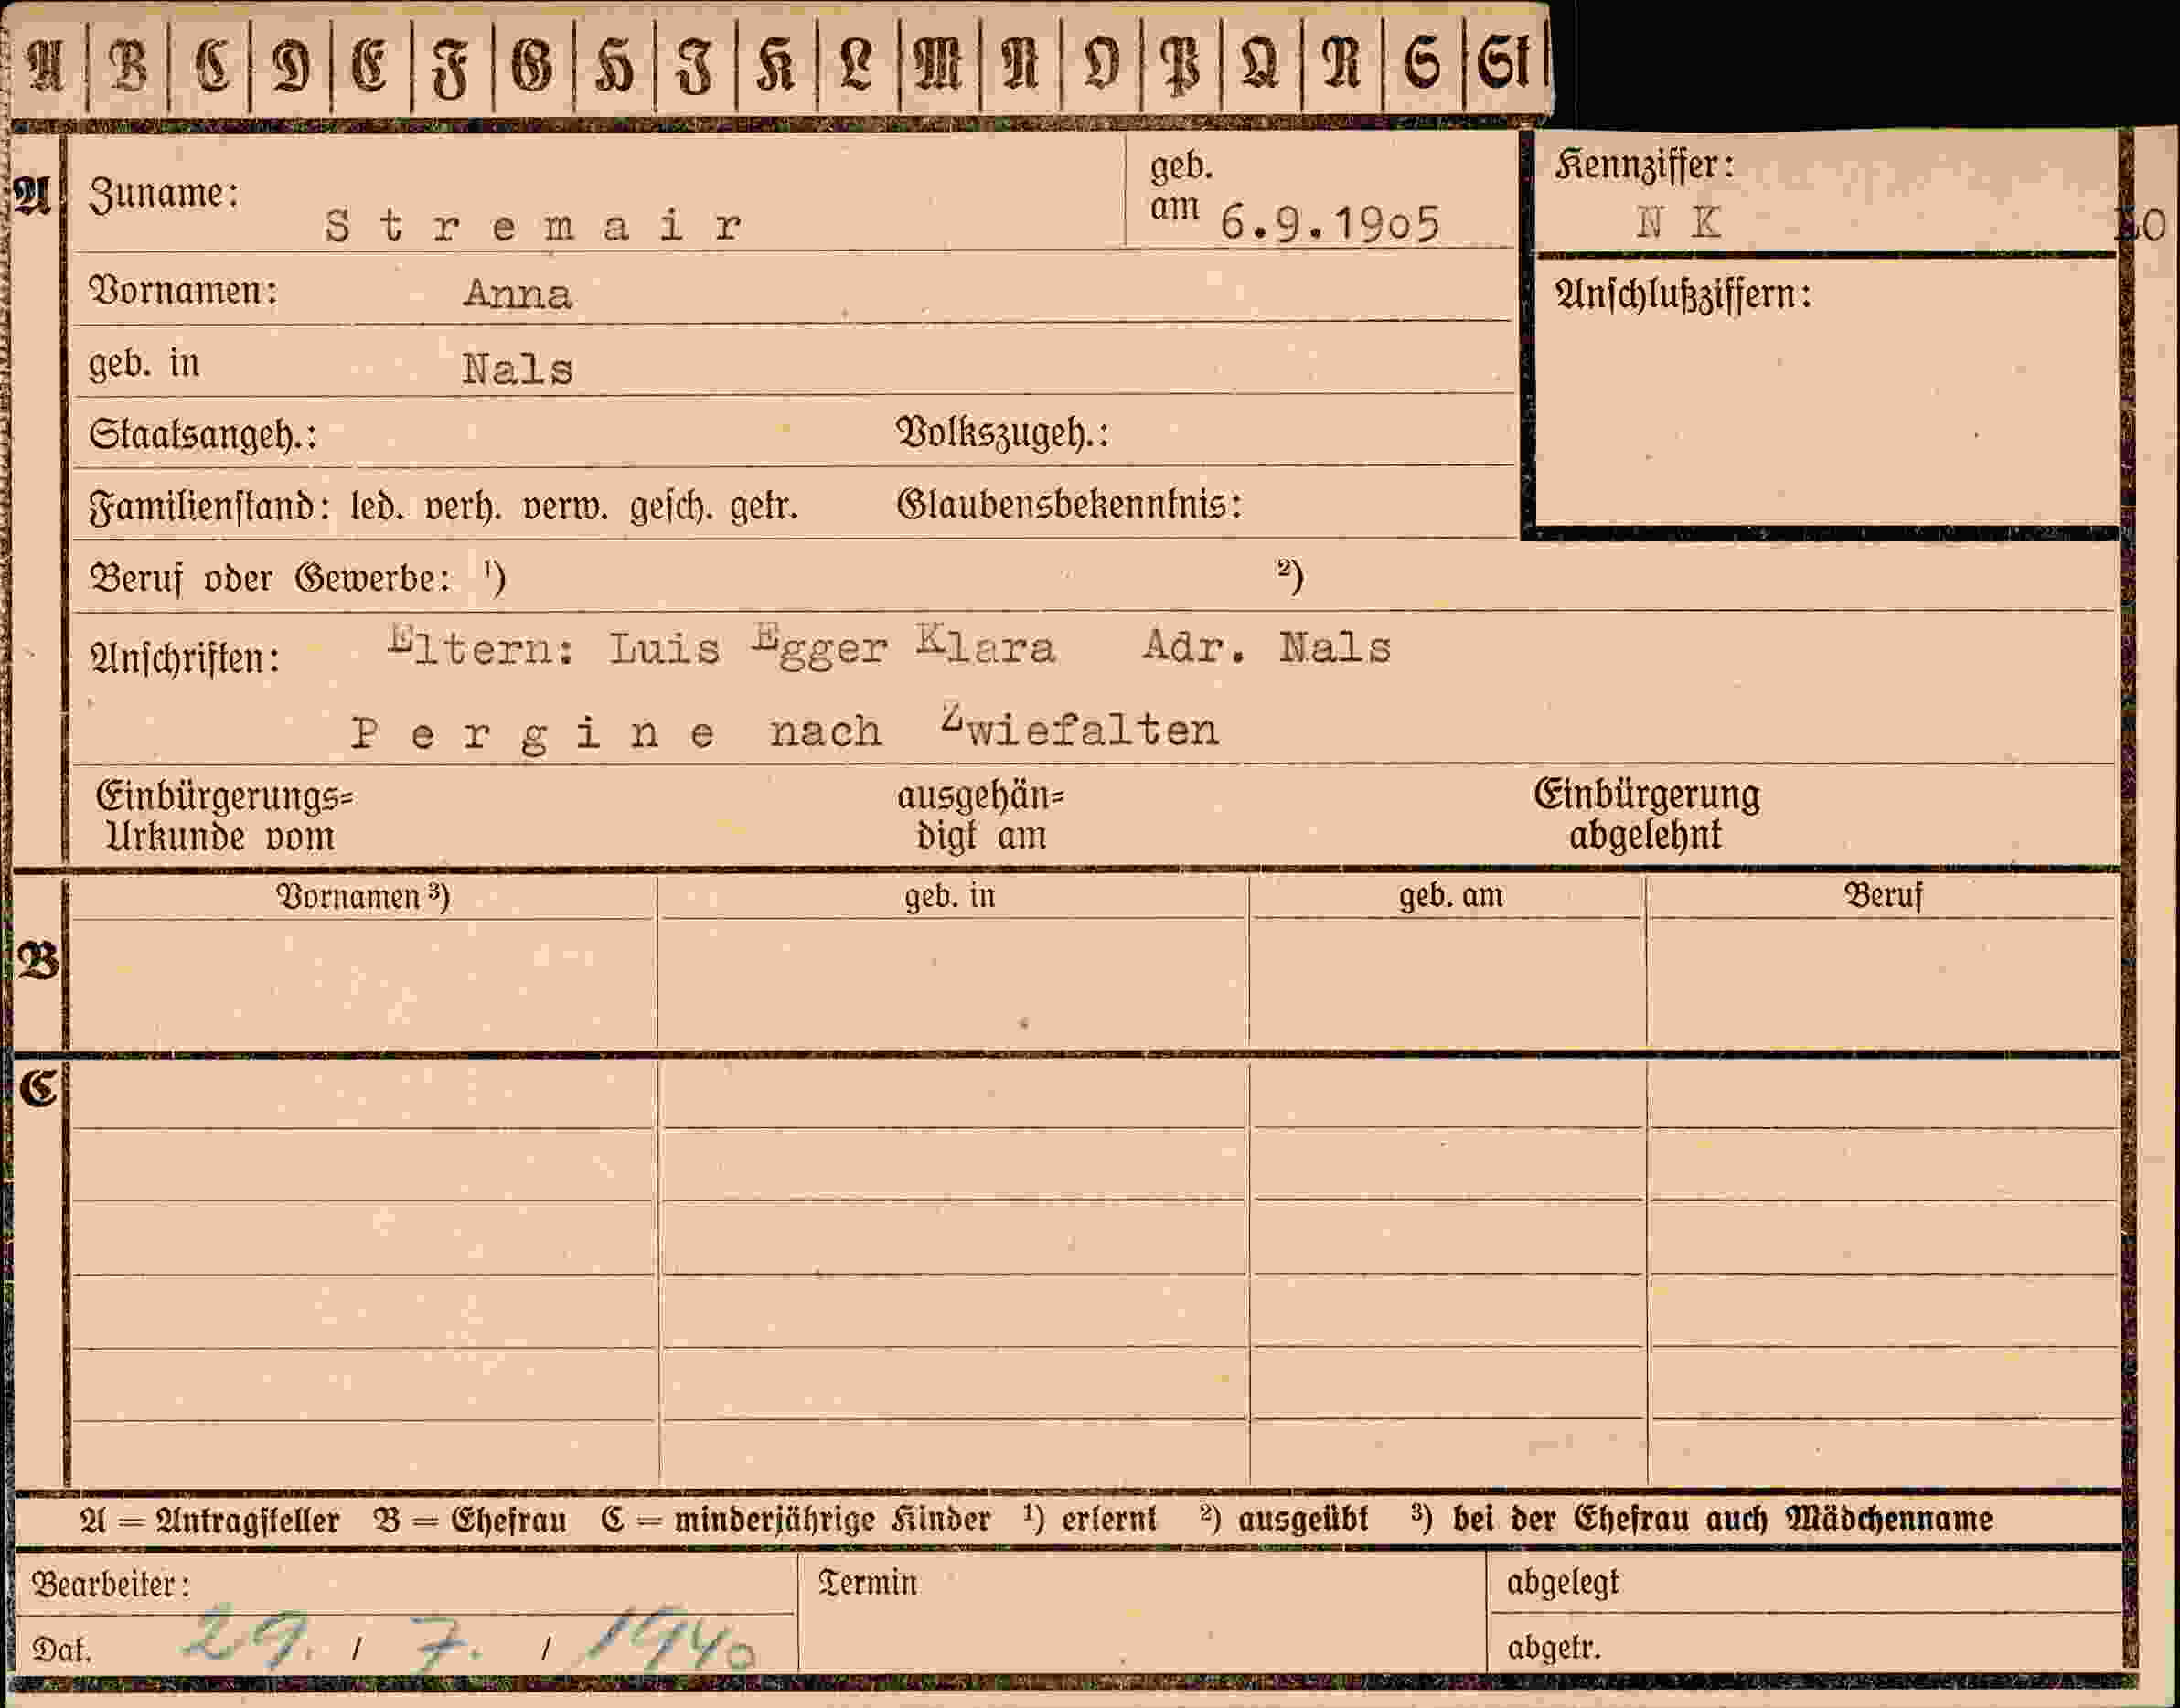 A B C D E F G H I K L M N O P Q R S St
A Zuname: Stremair geb. am 6.9.19o5 Kennziffer: N K
Vornamen: Anna Anschlußziffern:
geb. in Nals
Staatsangeh.: Volkszugeh.:
Familienstand: led. verh. verw. gesch. getr. Glaubensbekenntnis:
Beruf oder Gewerbe: ¹) ²)
Anschriften: Eltern: Luis Egger Klara Adr. Nals
Pergine nach Zwiefalten
Einbürgerungs= ausgehän= Einbürgerung
Urkunde vom digt am abgelehnt
Vornamen ³) geb. in geb. am Beruf
B
C
A = Antragsteller B = Ehefrau C = minderjährige Kinder ¹) erlernt ²) ausgeübt ³) bei der Ehefrau auch Mädchenname
Bearbeiter: Termin abgelegt
Dat. 29. / 7. / 1940 abgetr.